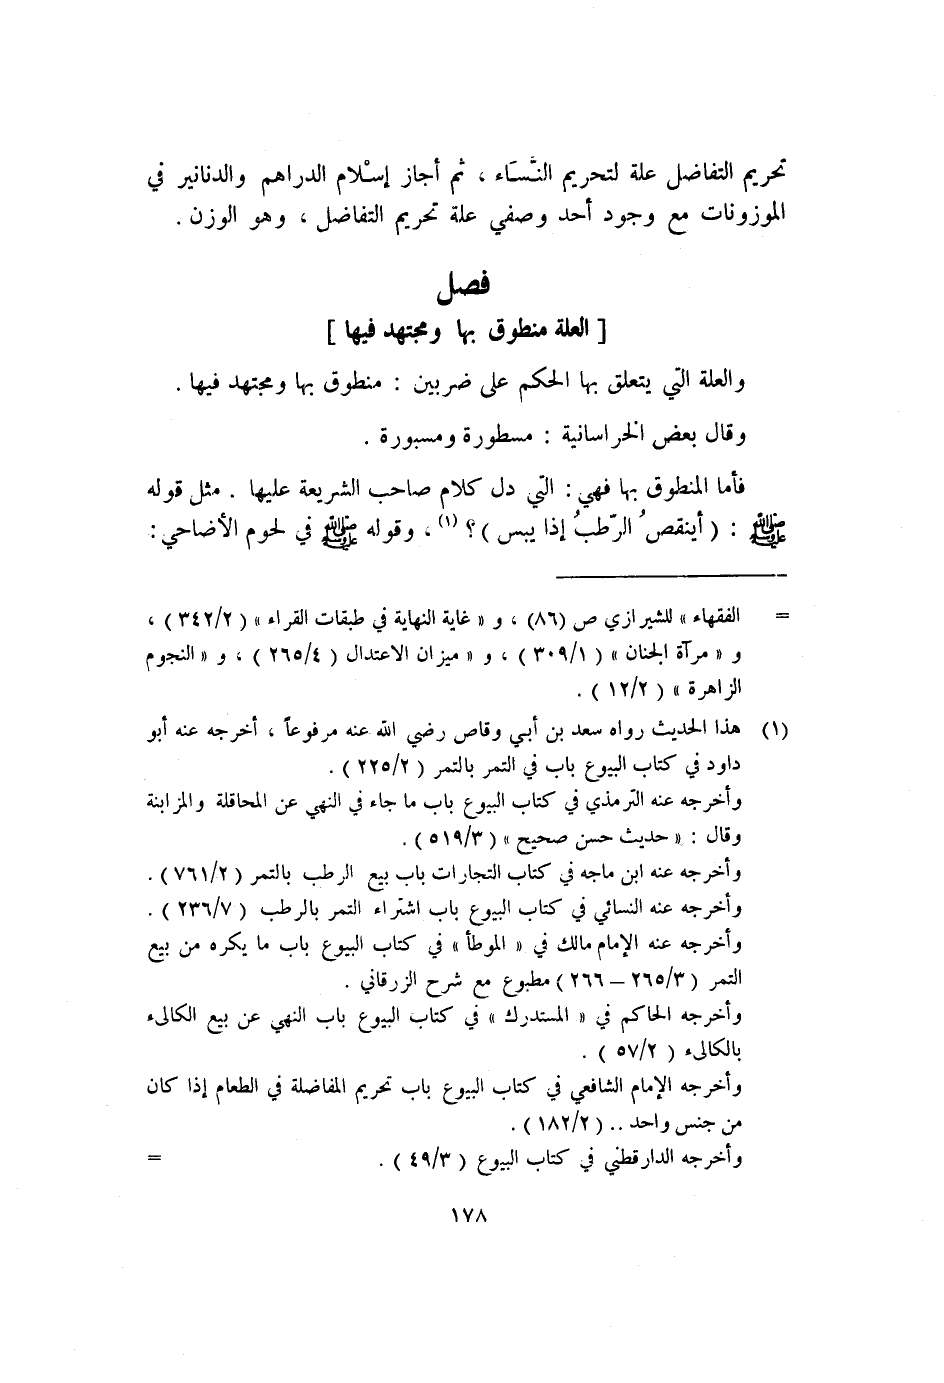 تحريم التفاضل علة لتحريم النَّسَاء ، ثم أجاز إسْلام الدراهم والدنانير في
الموزونات مع وجود أحد وصفي علة تحريم التفاضل ، وهو الوزن .
فصل
[ العلة منطوق بها ومجتهد فيها ]
والعلة التي يتعلق بها الحكم على ضربين : منطوق بها ومجتهد فيها .
وقال بعض الخراسانية : مسطورة ومسبورة .
فأما المنطوق بها فهي : التي دل كلام صاحب الشريعة عليها . مثل قوله
ﷺ : ( أينقصُ الرّطبُ إذا يبس ) ؟ (١) ، وقوله ﷺ في لحوم الأضاحي :
= الفقهاء » للشيرازي ص (٨٦) ، و « غاية النهاية في طبقات القراء » ( ٣٤٢/٢ ) ،
و « مرآة الجنان » ( ٣٠٩/١ ) ، و « ميزان الاعتدال ( ٢٦٥/٤ ) ، و « النجوم
الزاهرة » ( ١٢/٢ ) .
(١) هذا الحديث رواه سعد بن أبي وقاص رضي الله عنه مرفوعاً ، أخرجه عنه أبو
داود في كتاب البيوع باب في التمر بالتمر ( ٢٢٥/٢ ) .
وأخرجه عنه الترمذي في كتاب البيوع باب ما جاء في النهي عن المحاقلة والمزابنة
وقال : « حديث حسن صحيح » ( ٥١٩/٣ ) .
وأخرجه عنه ابن ماجه في كتاب التجارات باب بيع الرطب بالتمر ( ٧٦١/٢ ) .
وأخرجه عنه النسائي في كتاب البيوع باب اشتراء التمر بالرطب ( ٢٣٦/٧ ) .
وأخرجه عنه الإمام مالك في « الموطأ » في كتاب البيوع باب ما يكره من بيع
التمر ( ٢٦٥/٣ – ٢٦٦ ) مطبوع مع شرح الزرقاني .
وأخرجه الحاكم في « المستدرك » في كتاب البيوع باب النهي عن بيع الكالىء
بالكالىء ( ٥٧/٢ ) .
وأخرجه الإمام الشافعي في كتاب البيوع باب تحريم المفاضلة في الطعام إذا كان
من جنس واحد .. ( ١٨٢/٢ ) .
وأخرجه الدارقطني في كتاب البيوع ( ٤٩/٣ ) . =
١٧٨